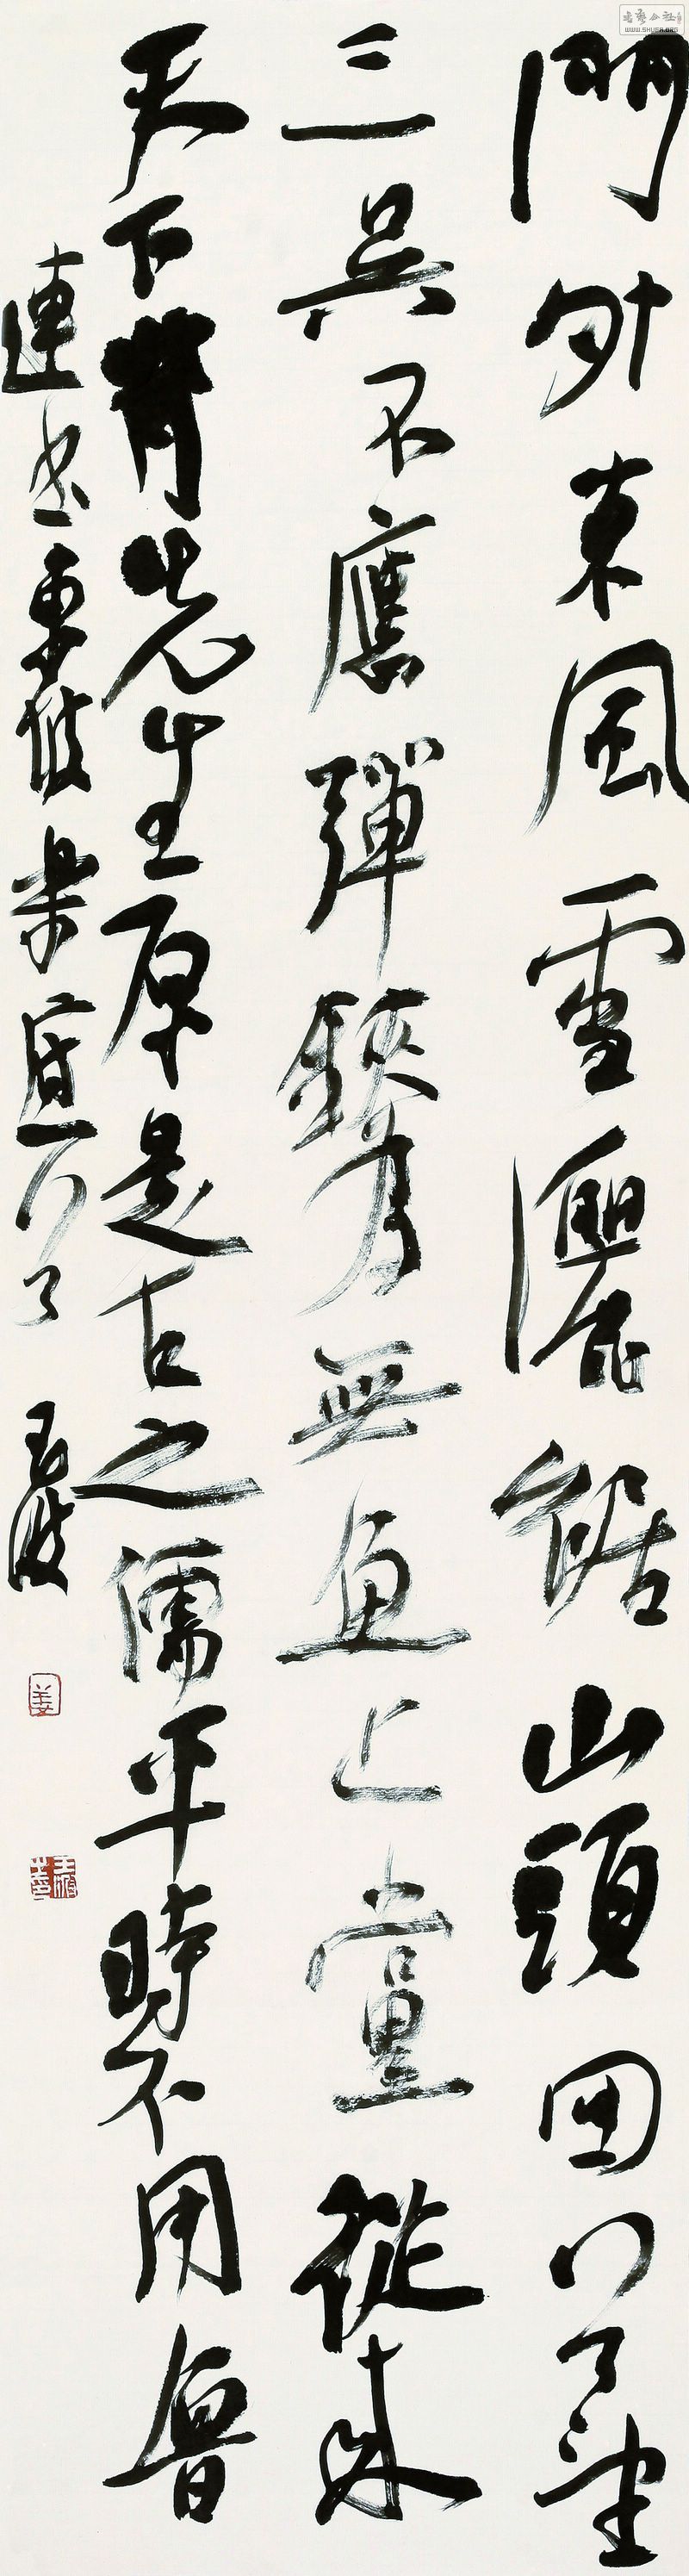 門外東風雪灑裾山頭回首望
三吳不應彈鋏為無魚上黨從來
天下脊先生原是古之儒平時不用魯
連書東坡樂府一首
姜
WWW.SHUFA.ORG